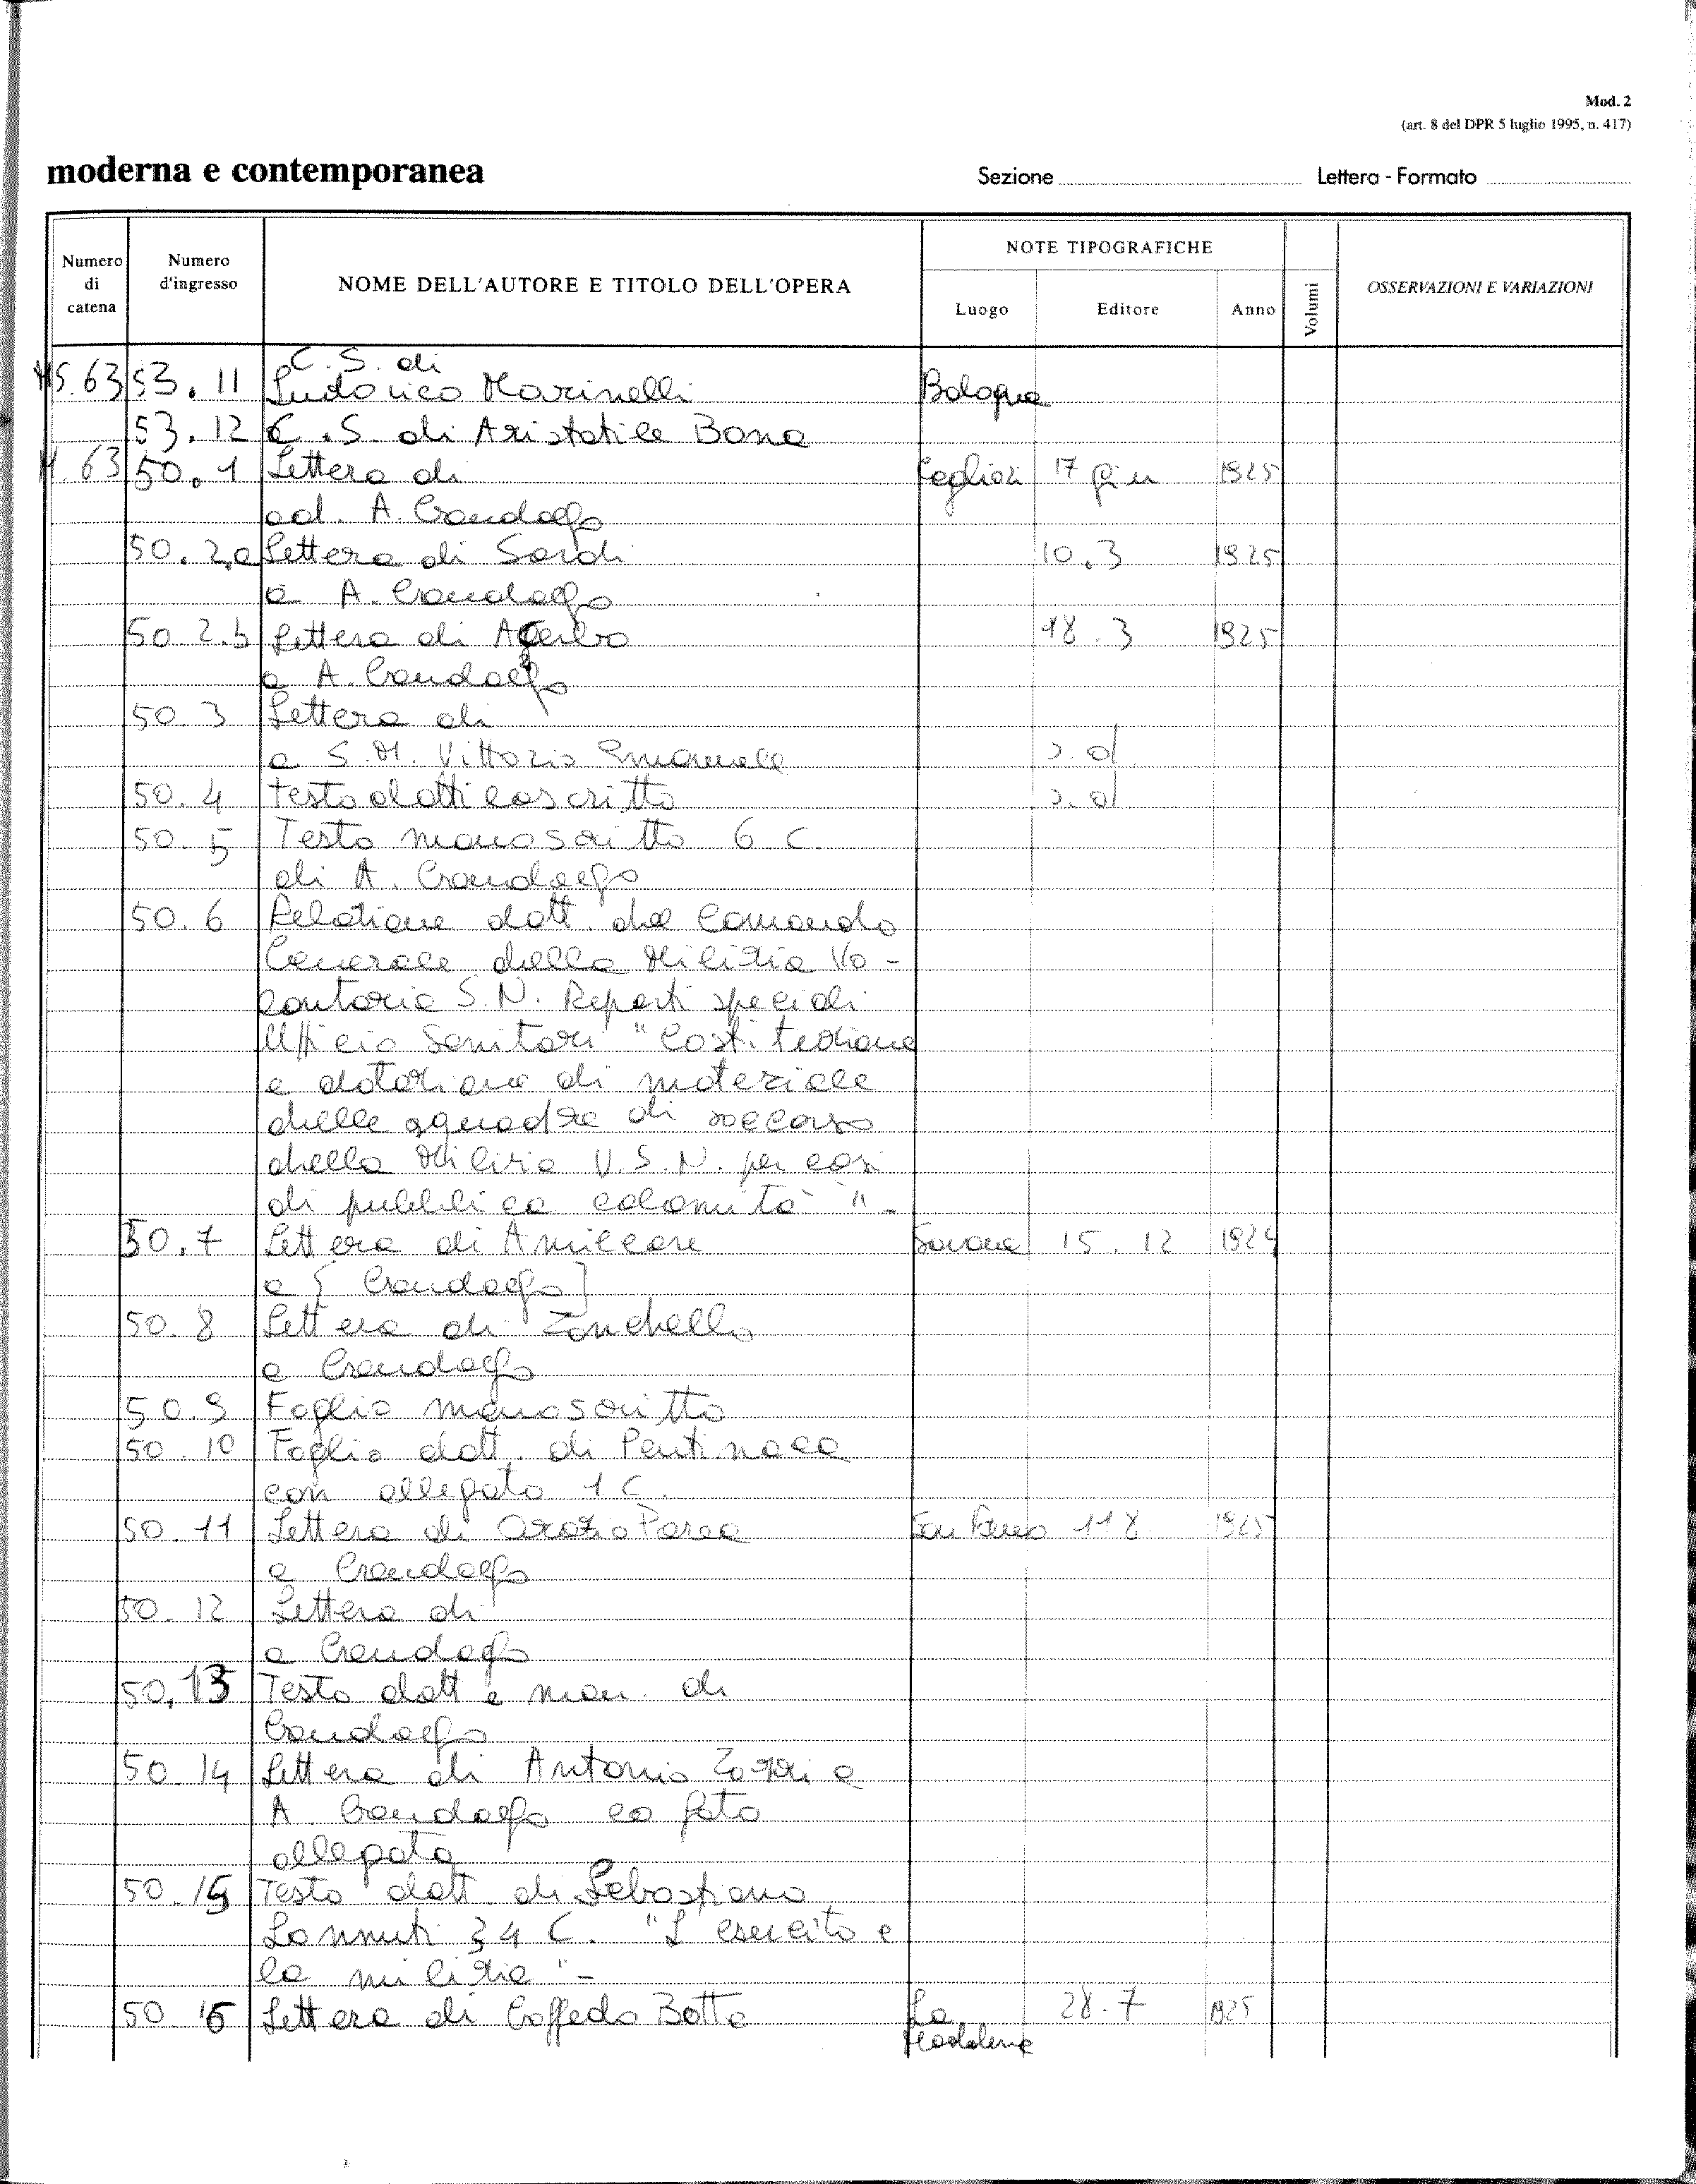 Mod. 2
(art. 8 del DPR 5 luglio 1995, n. 417)
moderna e contemporanea Sezione Lettera - Formato
Numero di catena Numero d'ingresso NOME DELL'AUTORE E TITOLO DELL'OPERA NOTE TIPOGRAFICHE Luogo Editore Anno Volumi OSSERVAZIONI E VARIAZIONI
C.S. di
MS.63 53.11 Ludovico Marinelli Bologna
53.12 C.S. di Aristotile Bona
M.63 50.1 Lettera di Cagliari 17 giu 1925
ad. A. Gandolfo
50.2,a Lettera di Sardi 10.3 1925
a A. Gandolfo
50 2.b Lettera di Acerbo 18.3 1925
a A. Gandolfo
50.3 Lettera di
a S.M. Vittorio Emanuele s.d
50.4 testo dattiloscritto s.d
50.5 Testo manoscritto 6 C.
di A. Gandolfo
50.6 Relazione datt. del Comando
Generale della Milizia Vo-
lontaria S.N. Reparti speciali
Ufficio Sanitari "Costituzione
e dotazione di materiale
delle squadre di soccorso
della Milizia V.S.N. per casi
di pubblica calamità".
50.7 Lettera di Amilcare Savona 15.12 1924
a [Gandolfo]
50.8 Lettera di Zonchello
a Gandolfo
50.9 Foglio manoscritto
50.10 Foglio datt. di Pentimaca
con allegato 1 C.
50.11 Lettera di Orazio Parea 11 8 1925
a Gandolfo
50.12 Lettera di
a Gandolfo
50,13 Testo datt e man. di
Gandolfo
50.14 Lettera di Antonio a
A. Gandolfo co foto
allegata
50.15 Testo datt. di Sebastiano
Lannuti 34 C. "L'esercito e
la milizia"-
50 16 Lettera di Goffredo Botta La 28.7 1925
Maddalena